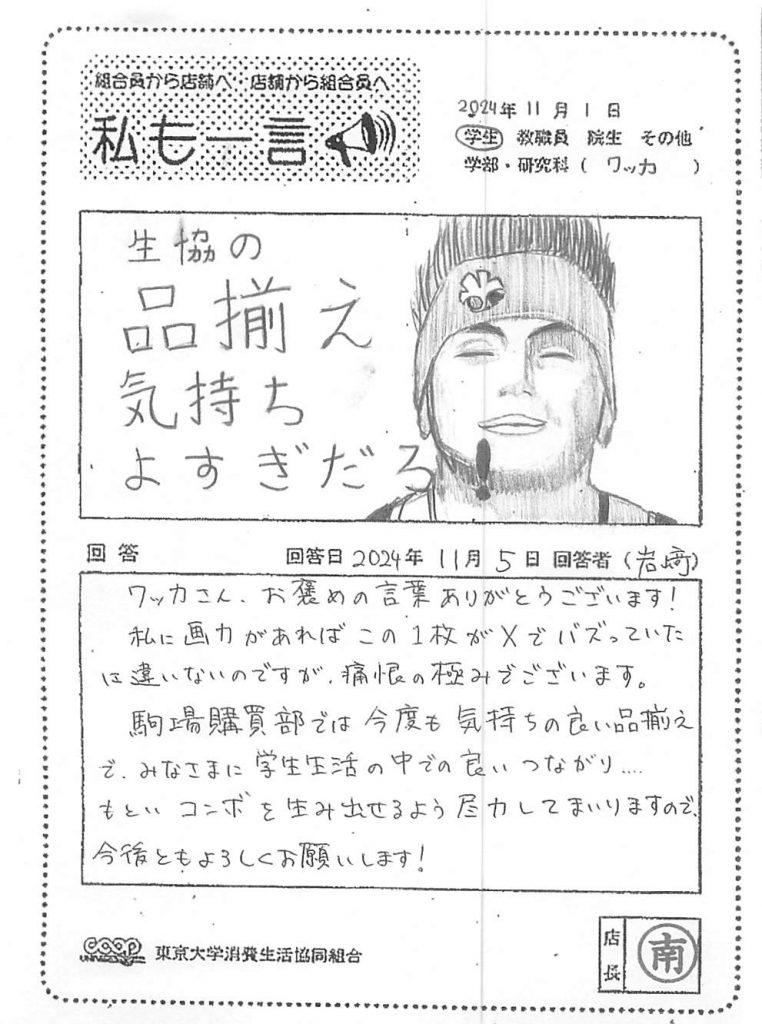 組合員から店舗へ 店舗から組合員へ
私も一言
2024年 11月 1日
学生 教職員 院生 その他
学部・研究科（ ワッカ ）
生協の
品揃え
気持ち
よすぎだろ
回答 回答日 2024年 11月 5日 回答者（岩﨑）
ワッカさん、お褒めの言葉ありがとうございます！
私に画力があればこの1枚がXでバズっていた
に違いないのですが、痛恨の極みでございます。
駒場購買部では今度も気持ちの良い品揃え
で、みなさまに学生生活の中での良いつながり....
もといコンボを生み出せるよう尽力してまいりますので、
今後ともよろしくお願いします！
COOP UNIVERSITY 東京大学消費生活協同組合
店長 南